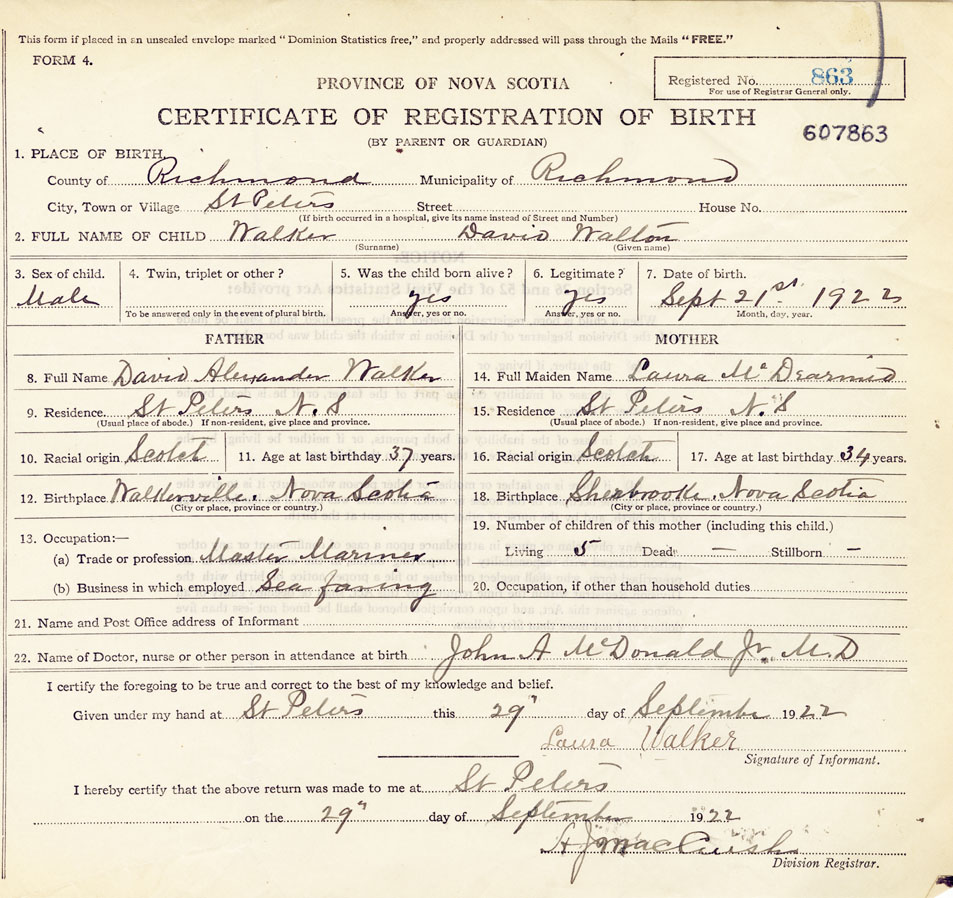 This form if placed in an unsealed envelope marked "Dominion Statistics free," and properly addressed will pass through the Mails "FREE."
FORM 4.
Registered No. 863
For use of Registrar General only.
PROVINCE OF NOVA SCOTIA
CERTIFICATE OF REGISTRATION OF BIRTH
607863
(BY PARENT OR GUARDIAN)
1. PLACE OF BIRTH
County of Richmond Municipality of Richmond
City, Town or Village St Peters Street House No.
(If birth occurred in a hospital, give its name instead of Street and Number)
2. FULL NAME OF CHILD Walker David Walton
(Surname) (Given name)
3. Sex of child. 4. Twin, triplet or other? 5. Was the child born alive? 6. Legitimate? 7. Date of birth.
Male yes yes Sept 21st. 1922
To be answered only in the event of plural birth. Answer, yes or no. Answer, yes or no. Month, day, year.
FATHER MOTHER
8. Full Name David Alexander Walker 14. Full Maiden Name Laura McDearmid
9. Residence. St Peters N.S 15. Residence St Peters N.S
(Usual place of abode.) If non-resident, give place and province. (Usual place of abode.) If non-resident, give place and province.
10. Racial origin Scotch 11. Age at last birthday 37 years. 16. Racial origin Scotch 17. Age at last birthday 34 years.
12. Birthplace Walkerville. Nova Scotia 18. Birthplace Sherbrooke. Nova Scotia
(City or place, province or country.) (City or place, province or country.)
13. Occupation:— 19. Number of children of this mother (including this child.)
(a) Trade or profession Master Mariner Living 5 Dead — Stillborn —
(b) Business in which employed Sea faring 20. Occupation, if other than household duties
21. Name and Post Office address of Informant
22. Name of Doctor, nurse or other person in attendance at birth John A McDonald Jr. M.D
I certify the foregoing to be true and correct to the best of my knowledge and belief.
Given under my hand at St Peters this 29" day of September 1922
Laura Walker
Signature of Informant.
I hereby certify that the above return was made to me at St Peters
on the 29" day of September 1922
Division Registrar.